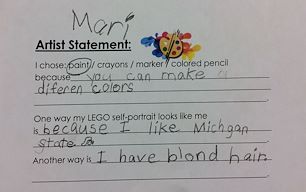 Mari
Artist Statement:
I chose: paint / crayons / marker / colored pencil
because you can make a
diferen colors
One way my LEGO self-portrait looks like me
is because I like Michgan
state
Another way is I have blond hair